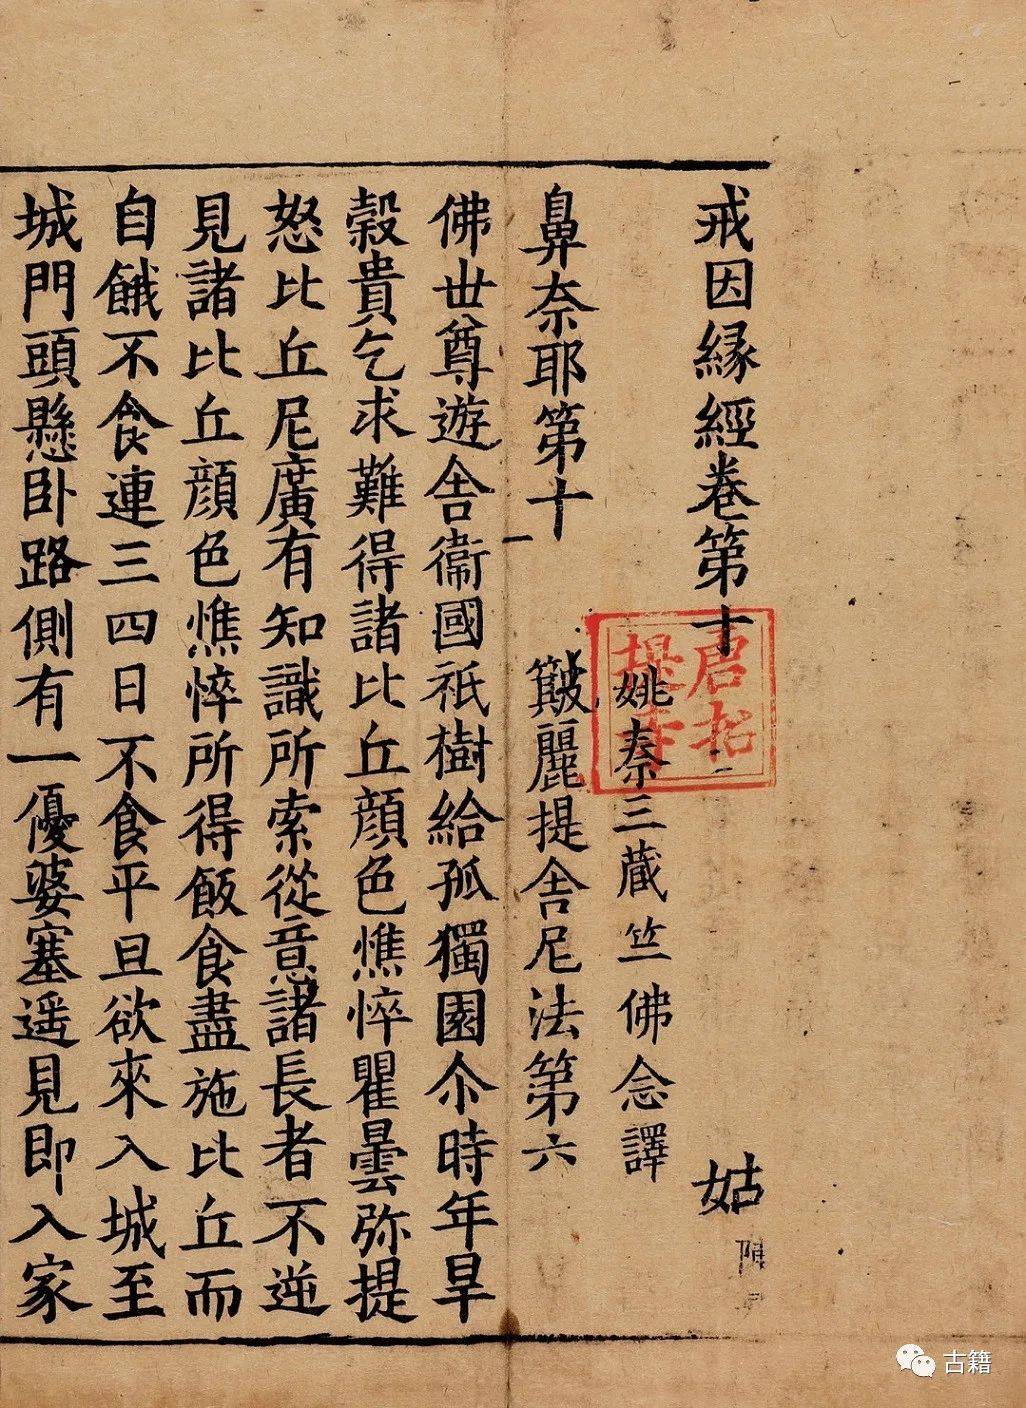 戒因緣經卷第十 姑
姚秦三藏竺佛念譯
鼻奈耶第十 皾麗提舍尼法第六
佛世尊遊舍衞國祇樹給孤獨園尒時年旱
穀貴乞求難得諸比丘顔色憔悴瞿曇弥提
怒比丘尼廣有知識所索從意諸長者不逆
見諸比丘顔色憔悴所得飯食盡施比丘而
自餓不食連三四日不食平旦欲來入城至
城門頭懸卧路側有一優婆塞遥見即入家
唐招
提寺
古籍